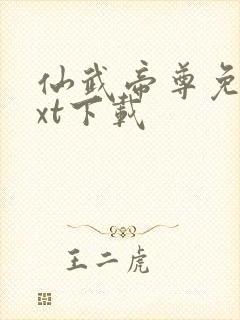 仙武帝尊免
xt下載
王二虎